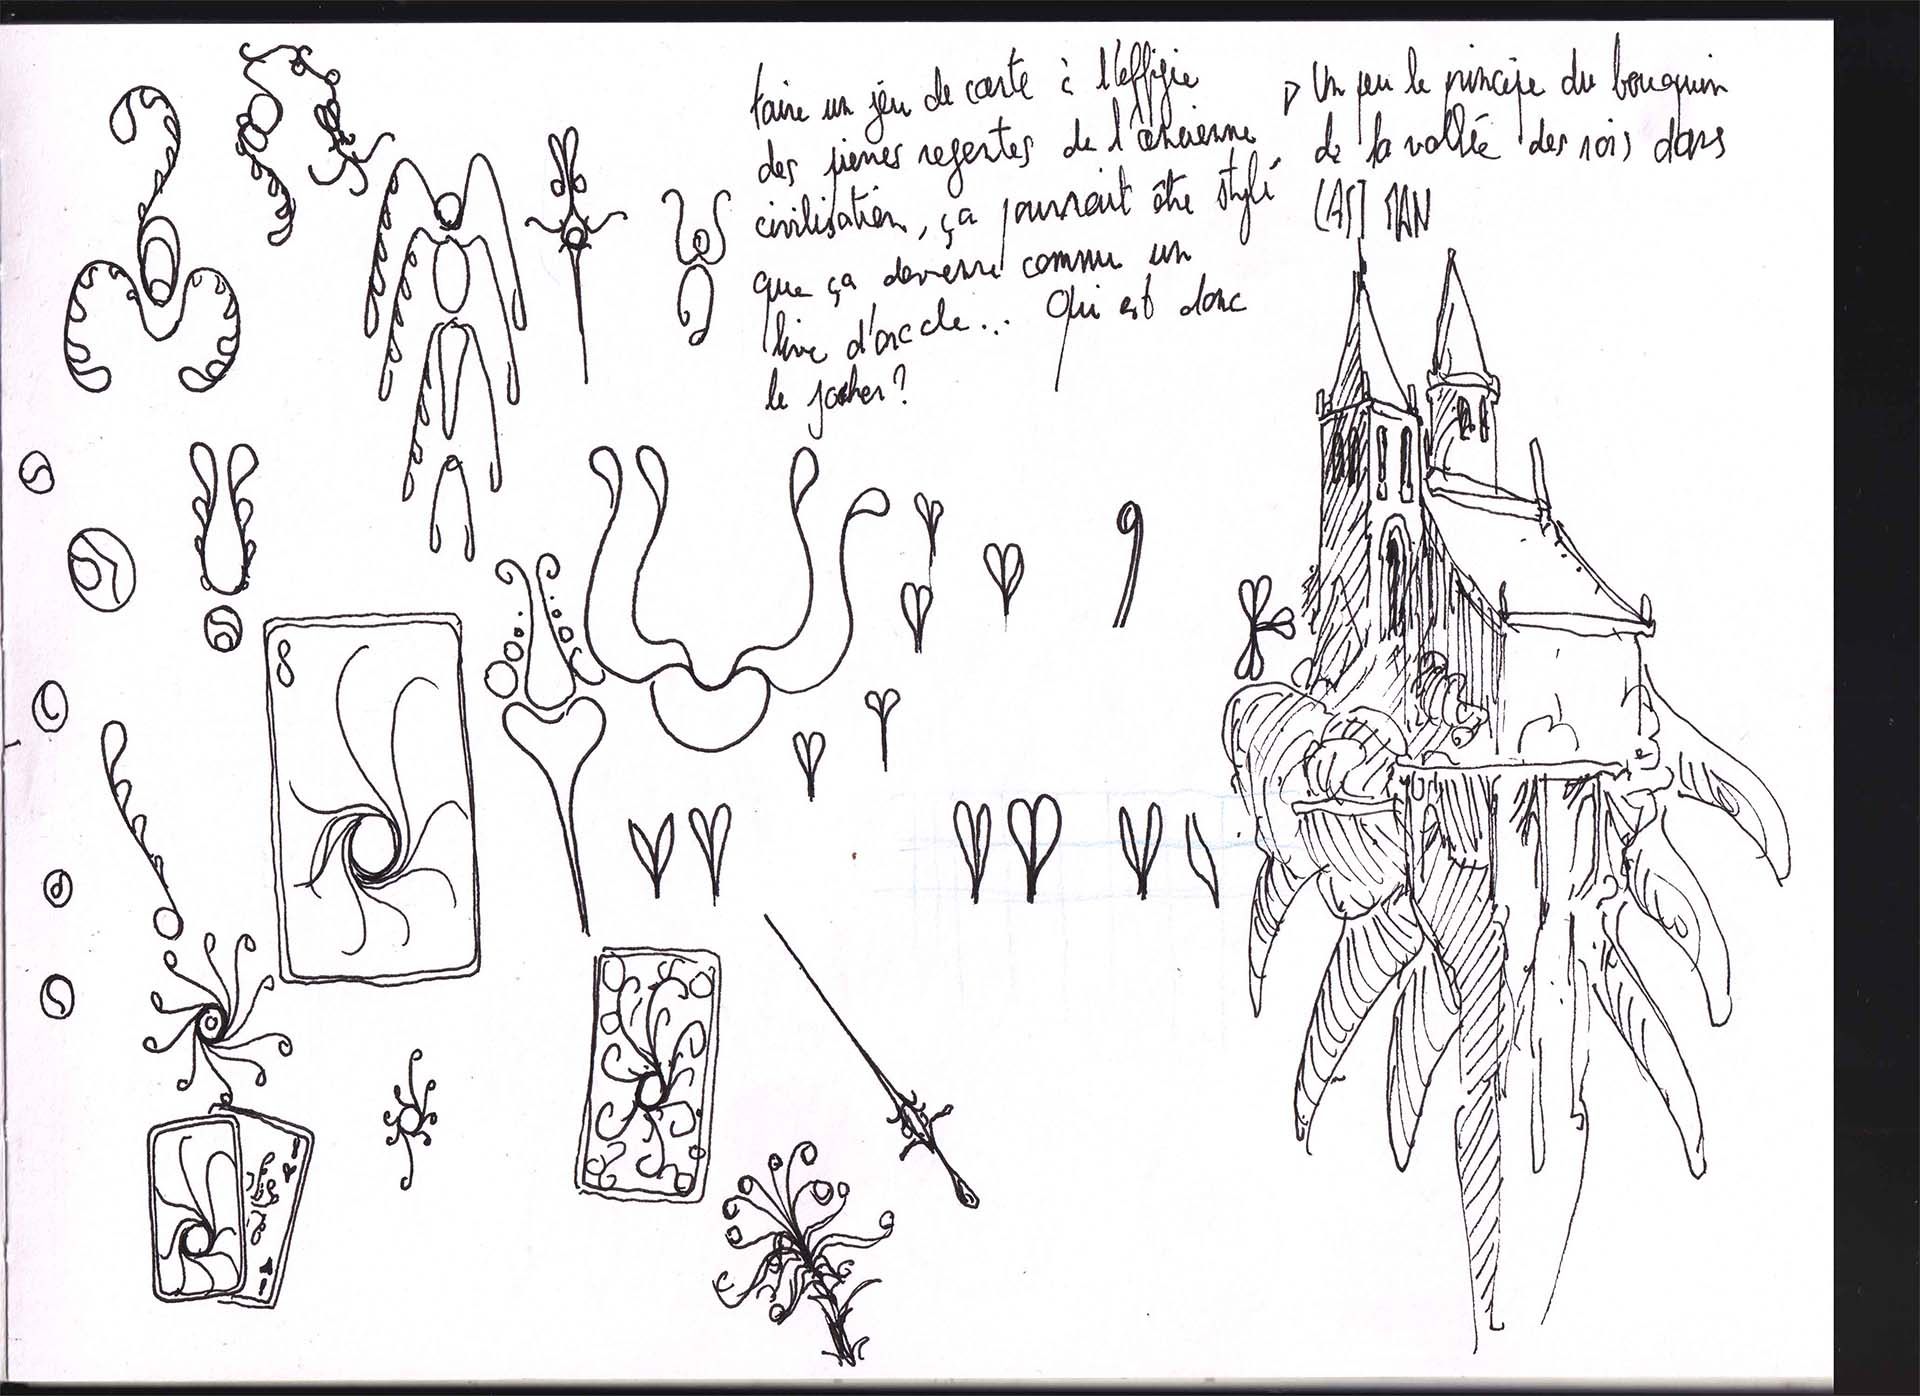 faire un jeu de carte à l'effigie
des pierres regentes de l'ancienne
civilisation, ça pourrait être stylé
que ça devienne comme un
livre d'oracle... Qui est donc
le jocker?
Un peu le principe du bouquin
de la vallée des rois dans
LAST MAN
8